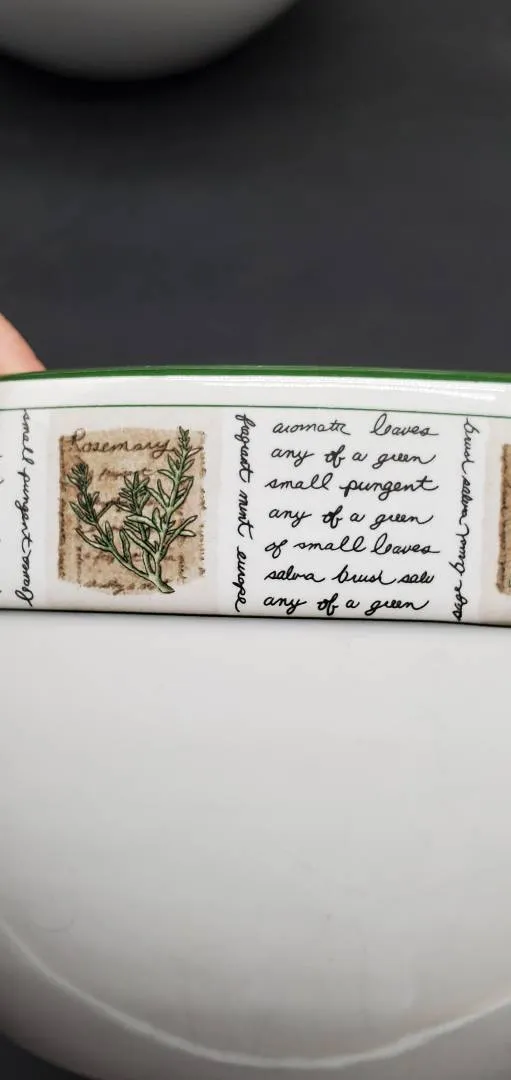 small pungent
Rosemary
fragrant mint europe
aromatic leaves
any of a green
small pungent
any of a green
of small leaves
salvia brush salv
any of a green
brush salvia